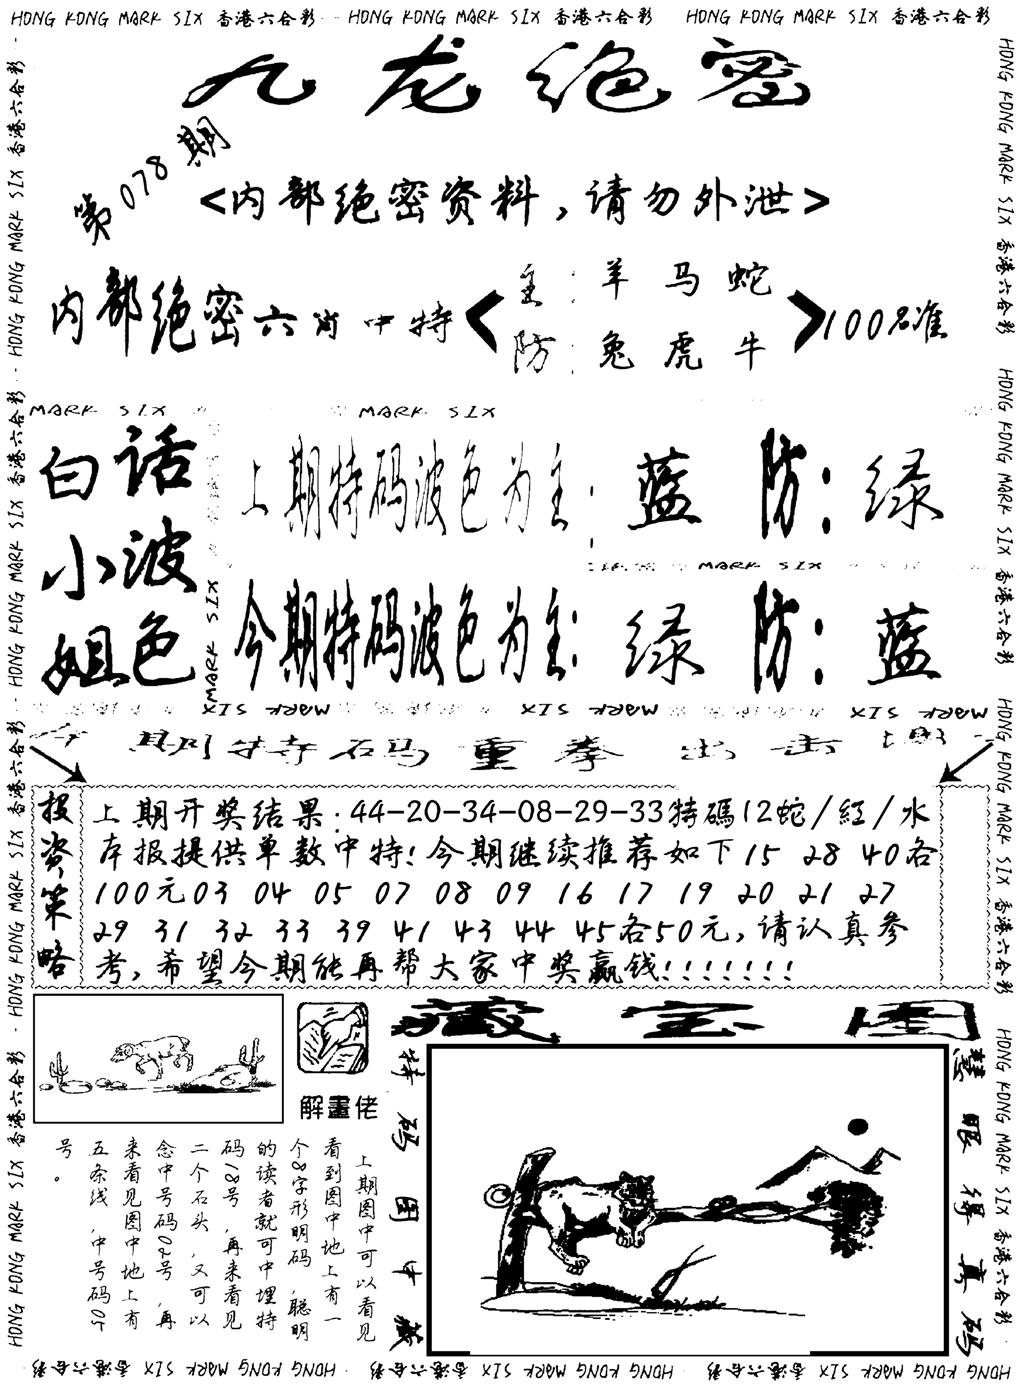 HONG KONG MARK SIX 香港六合彩 HONG KONG MARK SIX 香港六合彩 HONG KONG MARK SIX 香港六合彩
九龙绝密
第078期
<内部绝密资料，请勿外泄>
内部绝密六肖中特<主：羊马蛇
防：兔虎牛>100%准
MARK SIX MARK SIX
白话小波姐色
上期特码波色为主：蓝 防：绿
MARK SIX
今期特码波色为主：绿 防：蓝
MARK SIX
MARK SIX MARK SIX MARK SIX
今期特码重拳出击
投资策略
上期开奖结果：44-20-34-08-29-33特碼12蛇/紅/水
本报提供单数中特！今期继续推荐如下15 28 40各
100元03 04 05 07 08 09 16 17 19 20 21 27
29 31 32 33 39 41 43 44 45各50元，请认真参
考，希望今期能再帮大家中奖赢钱！！！！！！！
解畫佬
上期图中可以看见
看到图中地上有一
个8字形明码，聪明
的读者就可中埋特
码18号，再来看见
二个石头，又可以
念中号码02号，再
来看见图中地上有
五条线，中号码05
号。
藏宝图
特码图中藏
慧眼得真码
HONG KONG MARK SIX 香港六合彩 HONG KONG MARK SIX 香港六合彩 HONG KONG MARK SIX 香港六合彩
HONG KONG MARK SIX 香港六合彩 HONG KONG MARK SIX 香港六合彩 HONG KONG MARK SIX 香港六合彩 HONG KONG MARK SIX 香港六合彩
HONG KONG MARK SIX 香港六合彩 HONG KONG MARK SIX 香港六合彩 HONG KONG MARK SIX 香港六合彩 HONG KONG MARK SIX 香港六合彩